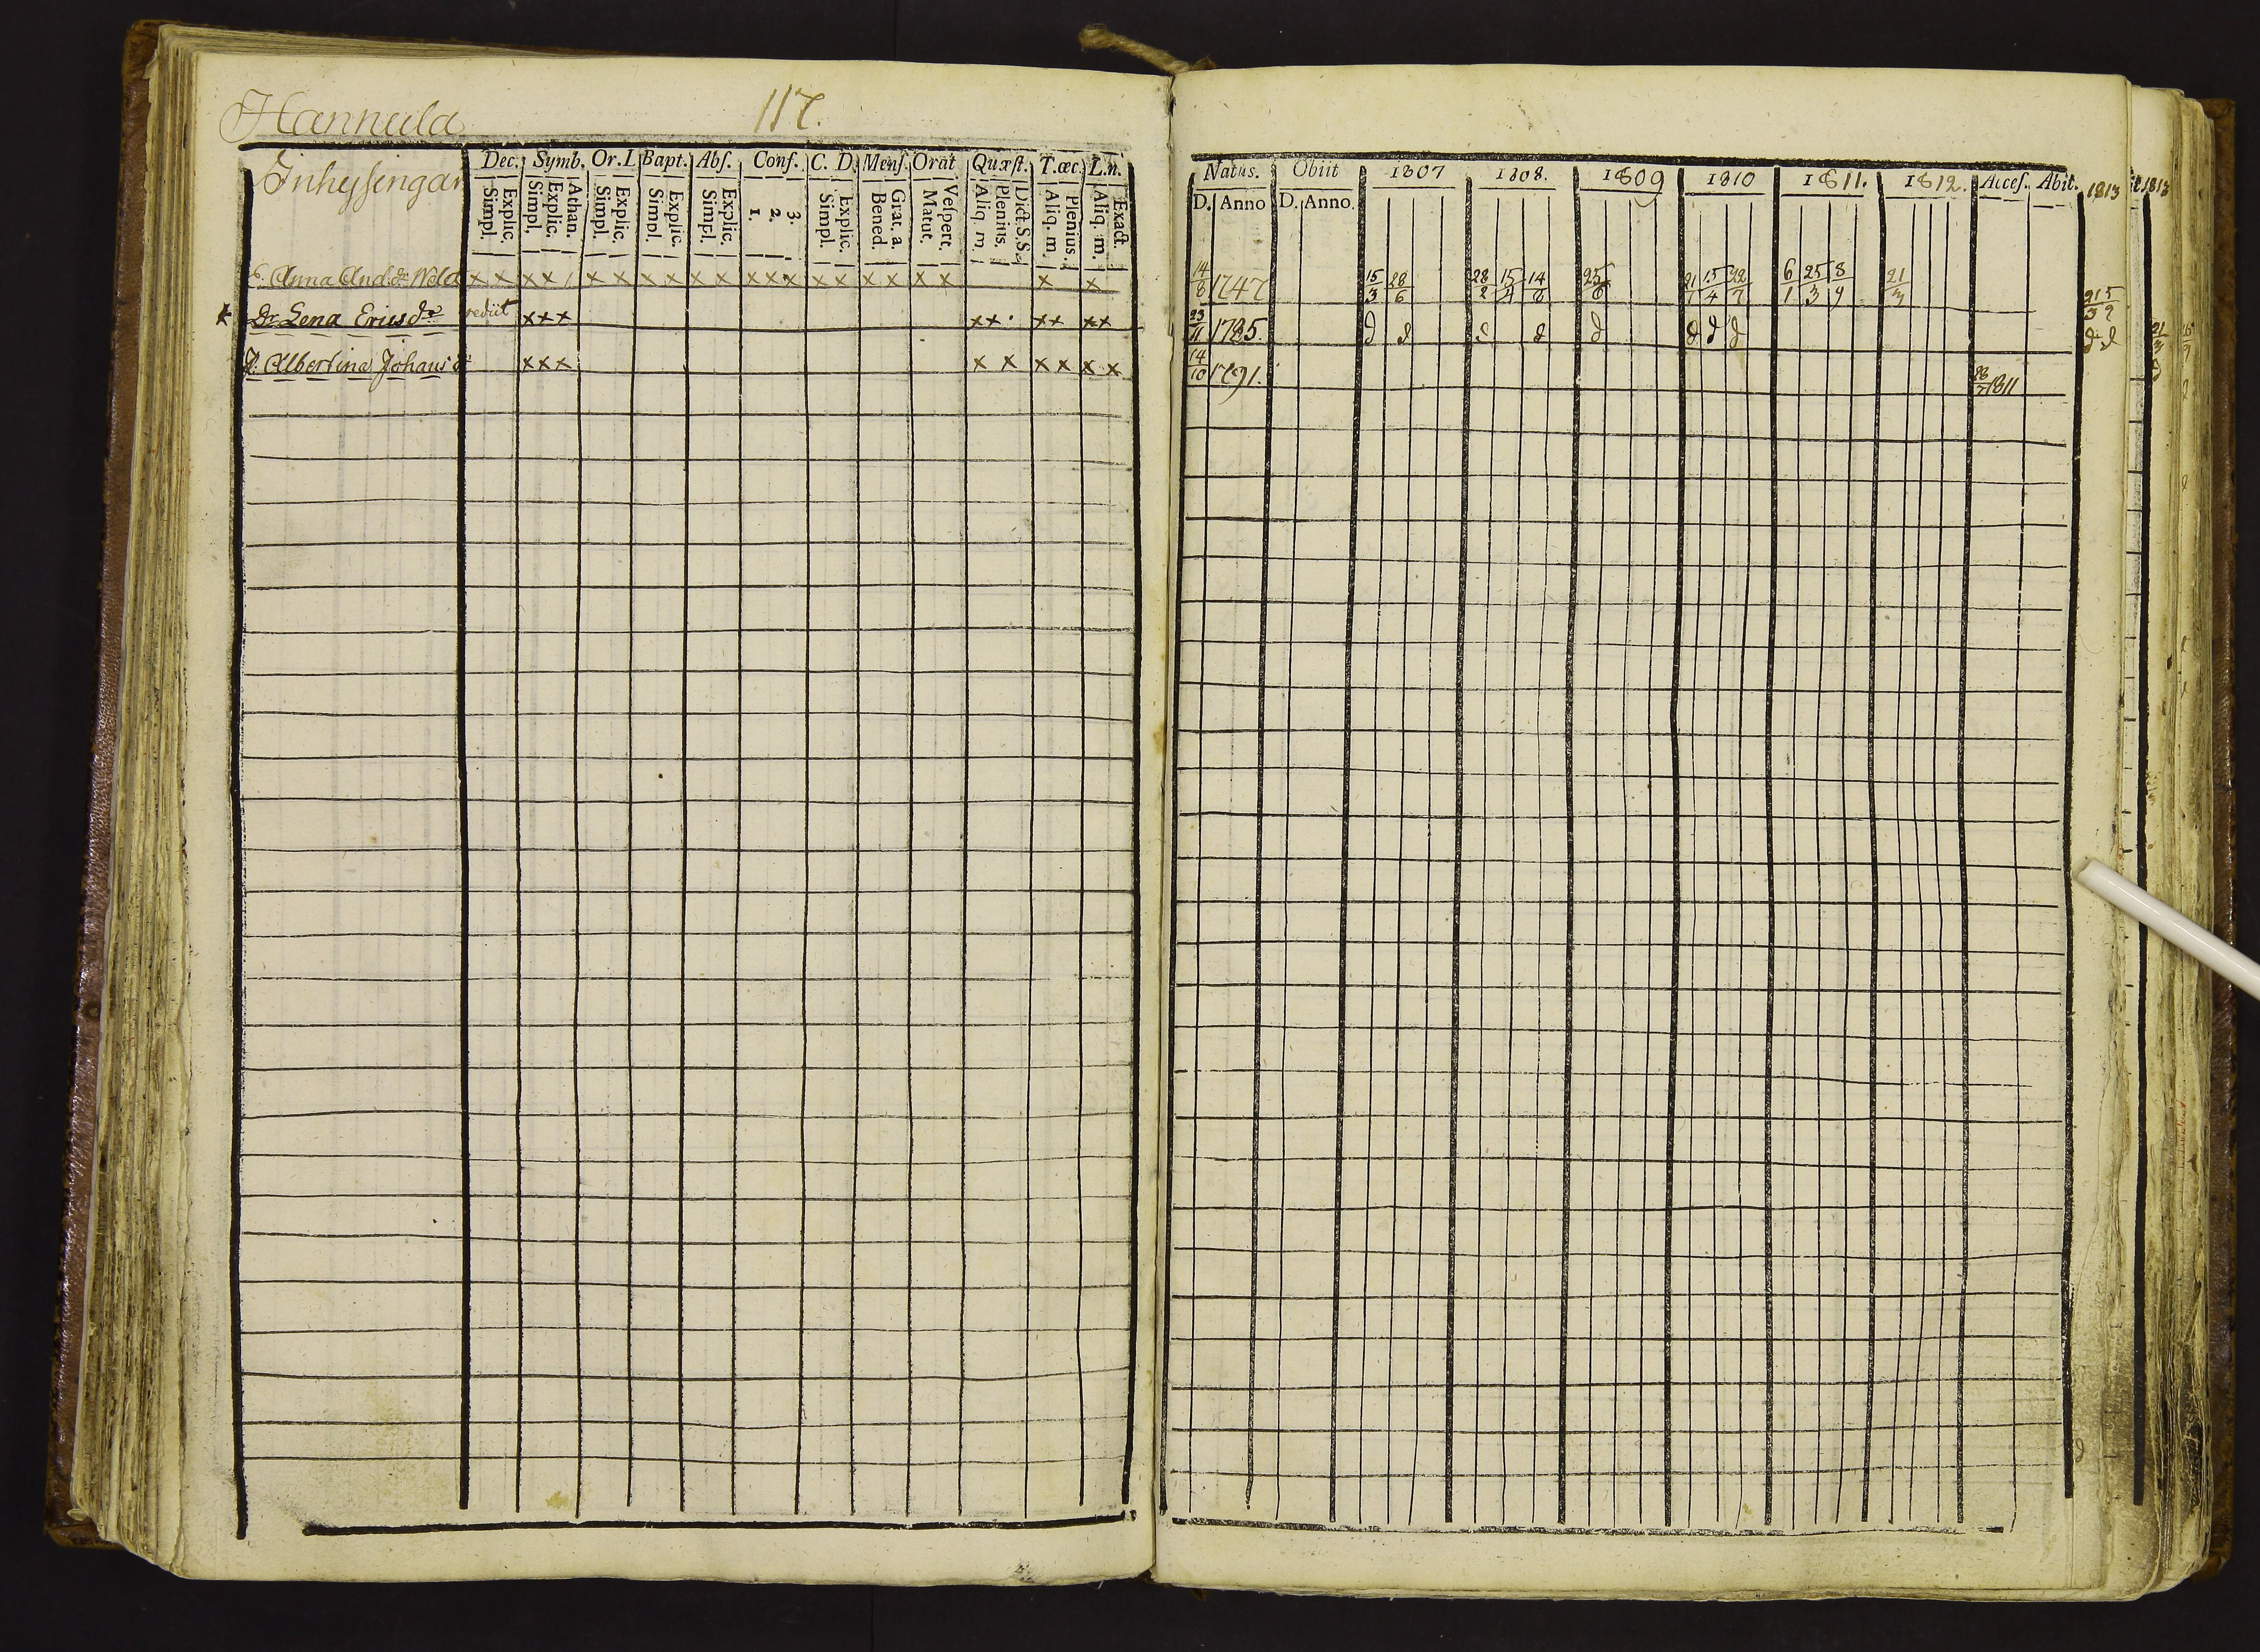 Hannula
117.
Inhysingar
Dec. Symb. Or. I. Bapt. Abſ. Conf. C. D. Menſ. Orat Quæſt. T. œc. L. n.
Simpl. Explic. Simpl. Explic. Athan. Simpl. Explic. Simpl. Explic. Simpl. Explic. 1. 2. 3. Simpl. Explic. Bened. Grat. a. Matut. Veſpert. Aliq. m. Plenius. Dict. S. S. Aliq. m. Plenius. Aliq. m. Exact.
Anna And. dr x x x x x x x x x x x x x x x x x x x x x x
Dr Lena Ericsdr rediit x x x x x x x x x
Albertina Johans x x x x x x x x x
Natus. Obiit 1807 1808. 1809 1810 1811. 1812. Acceſ. Abit. 1813
D. Anno D. Anno.
14/6 1747 15/3 28/6 28/2 15/4 14/8 25/6 21/1 15/4 22/7 6/1 25/3 8/9 21/3
23/11 1785. d d d d d d d d d d
14/10 1791. 1811